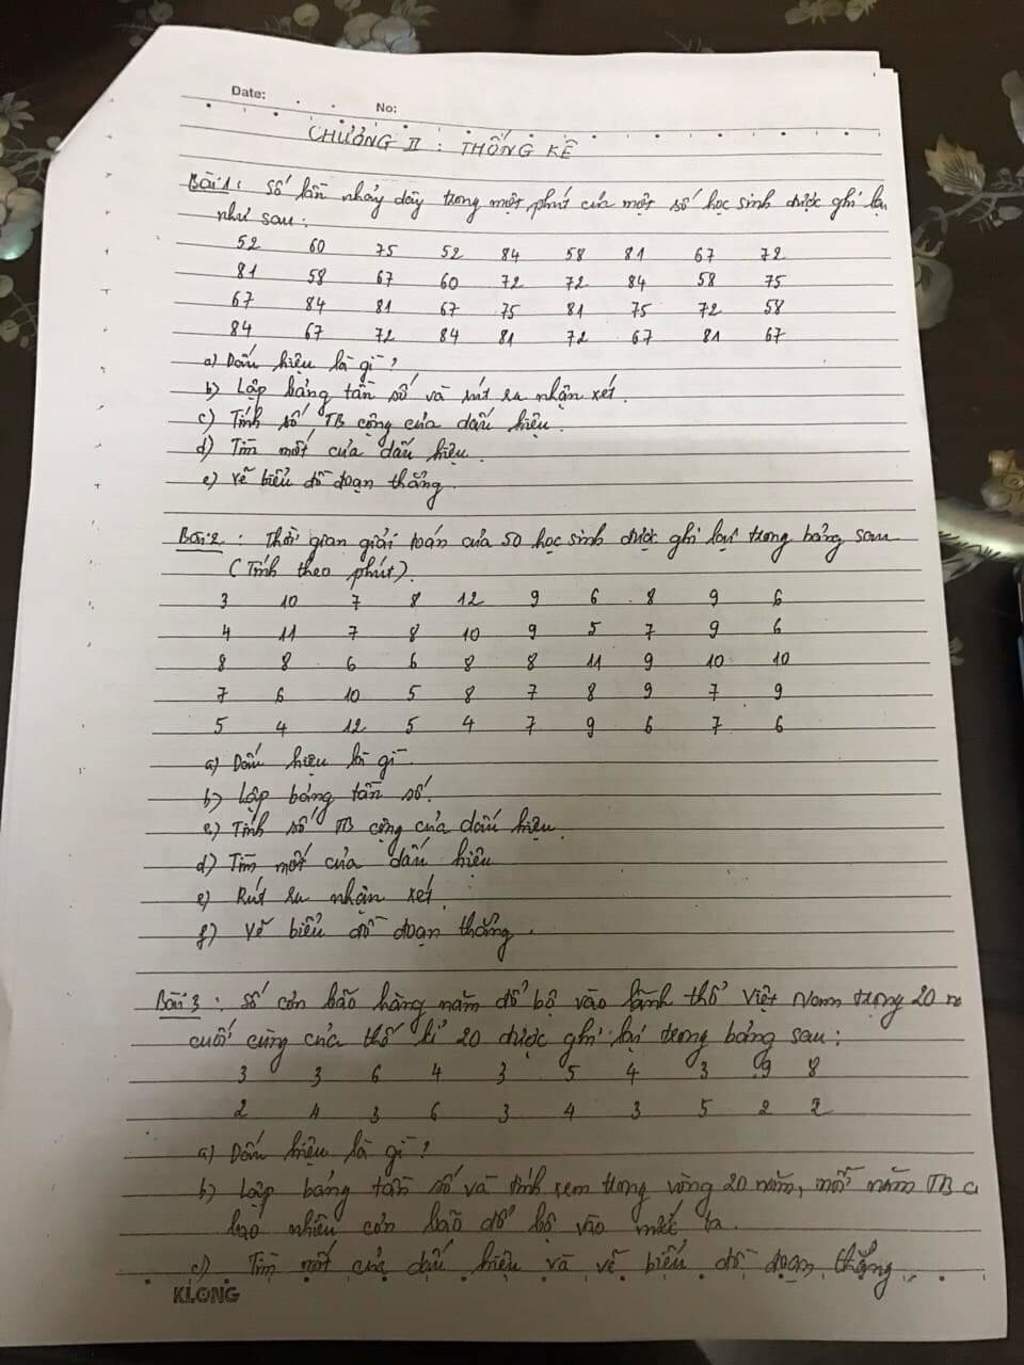 Date:
No:
CHƯƠNG II : THỐNG KÊ
Bài 1 : Số lần nhảy dây trong một phút của một số học sinh được ghi lại
như sau :
52 60 75 52 84 58 81 67 72
81 58 67 60 72 72 84 58 75
67 84 81 67 75 81 75 72 58
84 67 72 84 81 72 67 81 67
a) Dấu hiệu là gì ?
b) Lập bảng tần số và rút ra nhận xét.
c) Tính số TB cộng của dấu hiệu.
d) Tìm mốt của dấu hiệu.
e) Vẽ biểu đồ đoạn thẳng.
Bài 2 : Thời gian giải toán của 50 học sinh được ghi lại trong bảng sau
(Tính theo phút).
3 10 7 8 12 9 6 8 9 6
4 11 7 8 10 9 5 7 9 6
8 8 6 6 8 8 11 9 10 10
7 6 10 5 8 7 8 9 7 9
5 4 12 5 4 7 9 6 7 6
a) Dấu hiệu là gì
b) Lập bảng tần số.
c) Tính số TB cộng của dấu hiệu.
d) Tìm mốt của dấu hiệu
e) Rút ra nhận xét.
f) Vẽ biểu đồ đoạn thẳng.
Bài 3 : Số cơn bão hàng năm đổ bộ vào lãnh thổ Việt Nam trong 20 n
cuối cùng của thế kỉ 20 được ghi lại trong bảng sau :
3 3 6 4 3 5 4 3 9 8
2 4 3 6 3 4 3 5 2 2
a) Dấu hiệu là gì ?
b) Lập bảng tần số và tính xem trong vòng 20 năm, mỗi năm TB c
bao nhiêu cơn bão đổ bộ vào nước ta.
c) Tìm mốt của dấu hiệu và vẽ biểu đồ đoạn thẳng.
KLONG